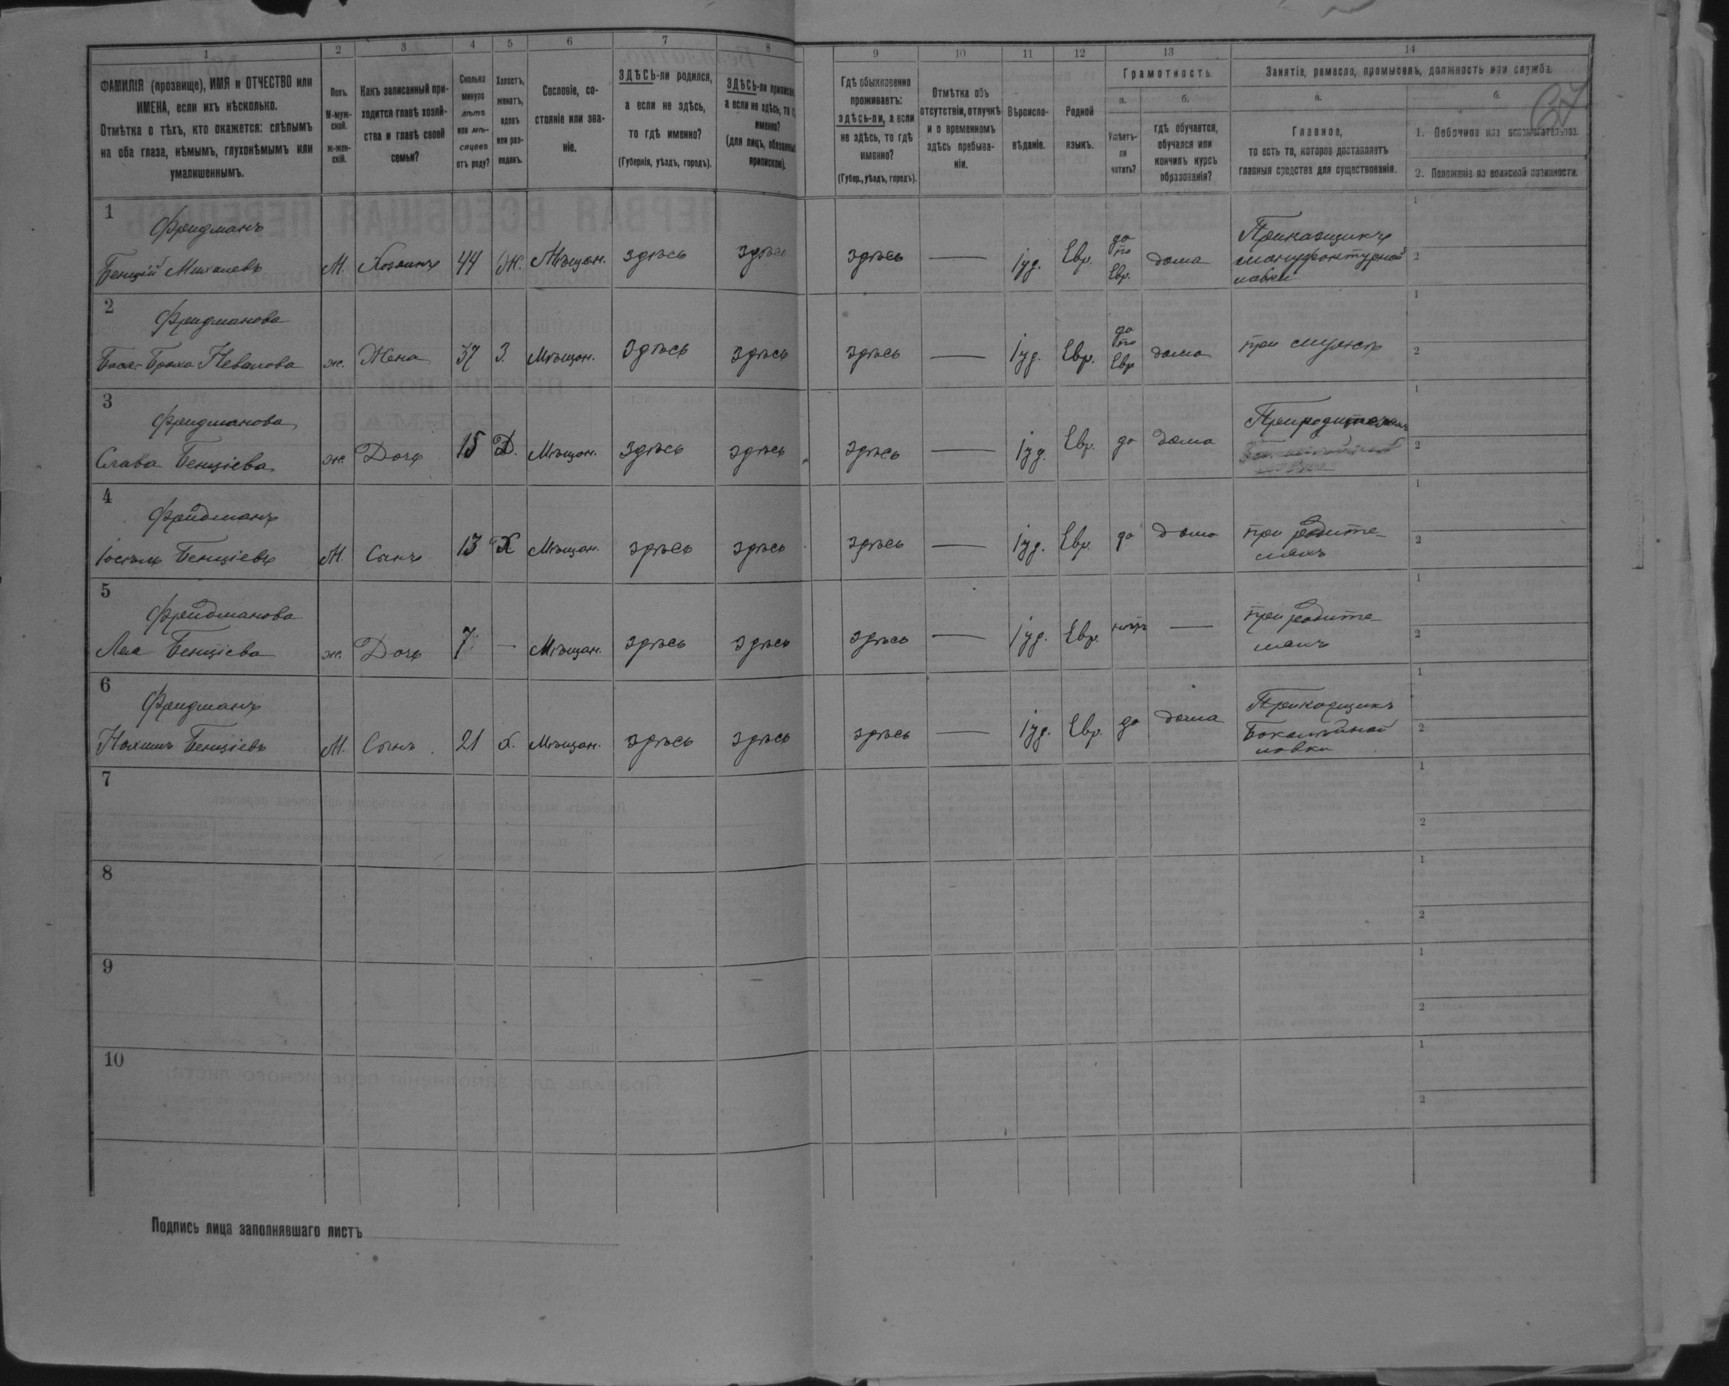 1 2 3 4 5 6 7 8 9 10 11 12 13 14
ФАМИЛІЯ (прозвище), ИМЯ и ОТЧЕСТВО или
ИМЕНА, если ихъ нѣсколько.
Отмѣтка о тѣхъ, кто окажется: слѣпымъ
на оба глаза, нѣмымъ, глухонѣмымъ или
умалишеннымъ.
Полъ.
М-муж-
ской.
ж-жен-
скій.
Какъ записанный при-
ходится главѣ хозяй-
ства и главѣ своей
семьи?
Сколько
минуло
лѣтъ
или мѣ-
сяцевъ
отъ роду?
Холостъ,
женатъ,
вдовъ
или раз-
веденъ.
Сословіе, со-
стояніе или зва-
ніе.
ЗДѢСЬ-ли родился,
а если не здѣсь,
то гдѣ именно?
(Губернія, уѣздъ, городъ).
ЗДѢСЬ-ли приписанъ
а если не здѣсь, то
именно?
(для лицъ, обязанныхъ
припиской).
Гдѣ обыкновенно
проживаетъ:
здѣсь-ли, а если
не здѣсь, то гдѣ
именно?
(Губер., уѣздъ, городъ).
Отмѣтка объ
отсутствіи, отлучкѣ
и о временномъ
здѣсь пребыва-
ніи.
Вѣроиспо-
вѣданіе.
Родной
языкъ.
Грамотность.
а.
Умѣетъ-
ли
читать?
б.
гдѣ обучается,
обучался или
кончилъ курсъ
образованія?
Занятіе, ремесло, промыселъ, должность или служба.
а.
Главное,
то есть то, которое доставляетъ
главныя средства для существованія.
б.
1. Побочное или вспомогательное.
2. Положеніе по воинской повинности.
37
1
Фридманъ
Бенцій Михелевъ М. Хозяинъ 44 Ж. Мѣщан. здѣсь здѣсь здѣсь — Іуд. Евр. да по Евр. дома Прикащикъ
мануфактурной
лавки
1
2
2
Фридманова
Бася-Браха Невахова ж. Жена 37 З. Мѣщан. здѣсь здѣсь здѣсь — Іуд. Евр. да по Евр дома при мужѣ
1
2
3
Фридманова
Слава Бенціева ж. Дочь 15 Д. Мѣщан. здѣсь здѣсь здѣсь — Іуд. Евр. да дома При родителяхъ
1
2
4
Фридманъ
Іосель Бенціевъ М. Сынъ 13 Х Мѣщан. здѣсь здѣсь здѣсь — Іуд. Евр. да дома при родите-
ляхъ
1
2
5
Фридманова
Лея Бенціева ж. Дочь 7 — Мѣщан. здѣсь здѣсь здѣсь — Іуд. Евр. нѣтъ — при родите
ляхъ
1
2
6
Фридманъ
Нохимъ Бенціевъ М. Сынъ 21 х. Мѣщан. здѣсь здѣсь здѣсь — Іуд. Евр. да дома Прикащикъ
Бокалейной
лавки
1
2
7
1
2
8
1
2
9
1
2
10
1
2
Подпись лица заполнявшаго листъ